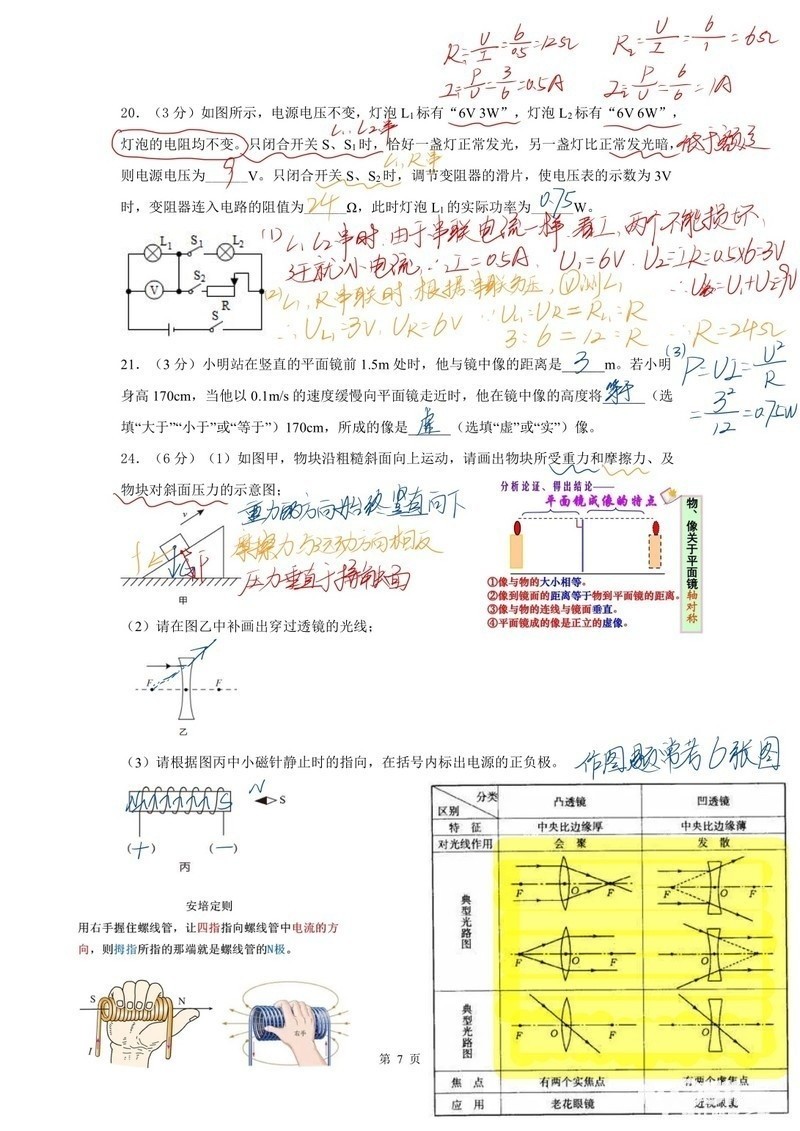 R₁=U/I=6/0.5=12Ω R₂=U/I=6/1=6Ω
I=P/U=3/6=0.5A I=P/U=6/6=1A
20．（3 分）如图所示，电源电压不变，灯泡 L₁标有“6V 3W”，灯泡 L₂标有“6V 6W”，
L₁、L₂串
灯泡的电阻均不变。只闭合开关 S、S₁时，恰好一盏灯正常发光，另一盏灯比正常发光暗，低于额定
L₁、R串
则电源电压为 9 V。只闭合开关 S、S₂时，调节变阻器的滑片，使电压表的示数为 3V
时，变阻器连入电路的阻值为 24 Ω，此时灯泡 L₁的实际功率为 0.75 W。
(1) L₁ L₂串时，由于串联电流一样，看I，两个不能损坏，
L₁ S₁ L₂
V S₂ R
S
∴I=0.5A U₁=6V U₂=IR=0.5×6=3V
∴U总=U₁+U₂=9V
(2) L₁、R串联时，根据串联分压，
∴U_L1=3V，U_R=6V U_L1:U_R=R_L1:R
3:6=12:R ∴R=24Ω
21．（3 分）小明站在竖直的平面镜前 1.5m 处时，他与镜中像的距离是 3 m。若小明
身高 170cm，当他以 0.1m/s 的速度缓慢向平面镜走近时，他在镜中像的高度将 等于 （选
填“大于”“小于”或“等于”）170cm，所成的像是 虚 （选填“虚”或“实”）像。
(3) P=UI=U²/R
=3²/12=0.75W
24．（6 分）（1）如图甲，物块沿粗糙斜面向上运动，请画出物块所受重力和摩擦力、及
物块对斜面压力的示意图；
重力的方向始终竖直向下
摩擦力与运动方向相反
压力垂直于接触面
v
f F
甲
分析论证、得出结论——
平面镜成像的特点
①像与物的大小相等。
②像到镜面的距离等于物到平面镜的距离。
③像与物的连线与镜面垂直。
④平面镜成的像是正立的虚像。
物、像关于平面镜轴对称
（2）请在图乙中补画出穿过透镜的光线；
F F
乙
（3）请根据图丙中小磁针静止时的指向，在括号内标出电源的正负极。
作图题常考6张图
N S N S
(+) (—)
丙
安培定则
用右手握住螺线管，让四指指向螺线管中电流的方
向，则拇指所指的那端就是螺线管的N极。
S N
I
右手
分类 区别 凸透镜 凹透镜
特 征 中央比边缘厚 中央比边缘薄
对光线作用 会 聚 发 散
典型光路图
F O F F O F
F O F F O F
典型光路图
F O F F O F
焦 点 有两个实焦点 有两个虚焦点
应 用 老花眼镜 近视眼镜
第 7 页